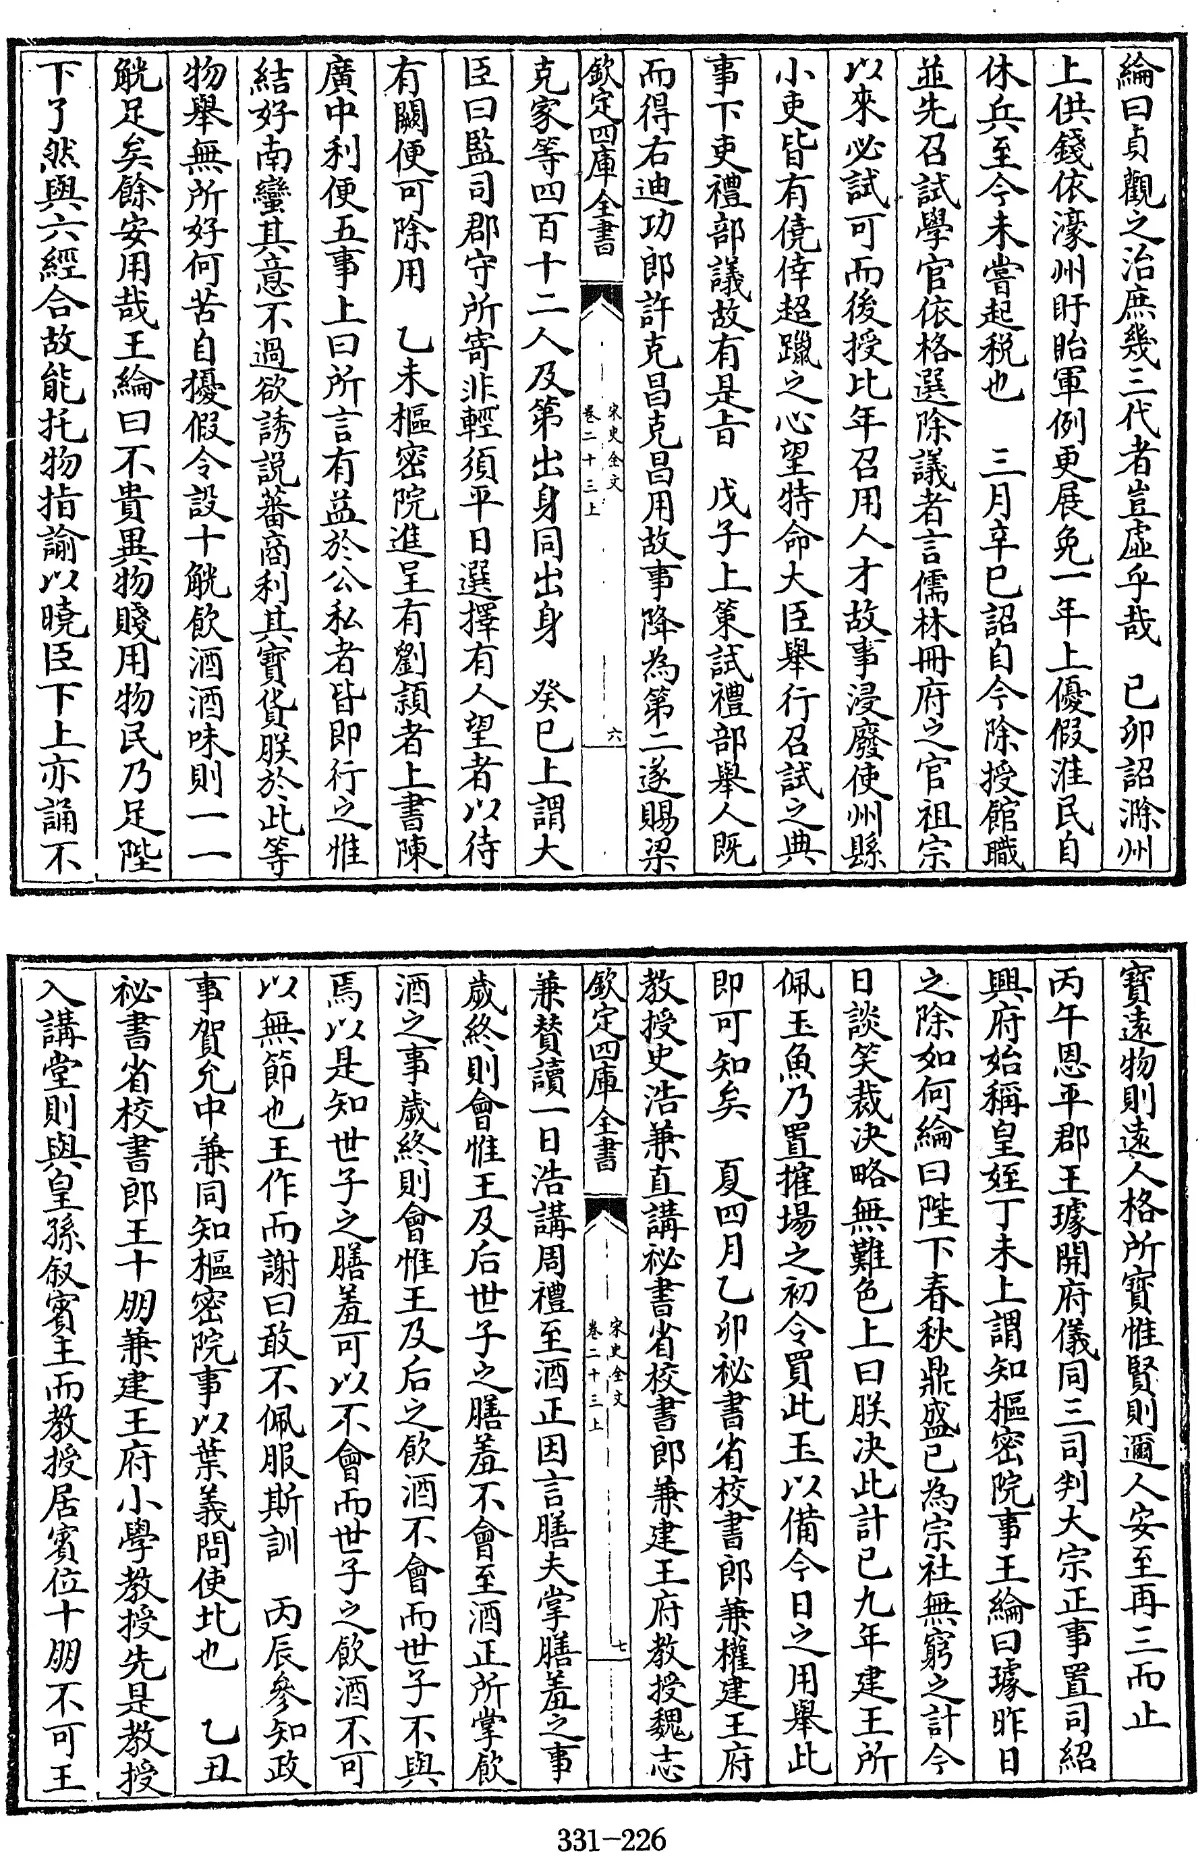 綸曰貞觀之治庶幾三代者豈虛乎哉　己卯詔滁州
上供錢依濠州盱眙軍例更展免一年上優假淮民自
休兵至今未嘗起稅也　三月辛巳詔自今除授館職
並先召試學官依格選除議者言儒林冊府之官祖宗
以來必試可而後授比年召用人才故事浸廢使州縣
小吏皆有僥倖超躐之心望特命大臣舉行召試之典
事下吏禮部議故有是旨　戊子上策試禮部舉人既
而得右迪功郎許克昌克昌用故事降為第二遂賜梁
欽定四庫全書
宋史全文
卷二十三上
六
克家等四百十二人及第出身同出身　癸巳上謂大
臣曰監司郡守所寄非輕須平日選擇有人望者以待
有闕便可除用　乙未樞密院進呈有劉潁者上書陳
廣中利便五事上曰所言有益於公私者皆即行之惟
結好南蠻其意不過欲誘說蕃商利其寶貨朕於此等
物舉無所好何苦自擾假令設十觥飲酒酒味則一一
觥足矣餘安用哉王綸曰不貴異物賤用物民乃足陛
下了然與六經合故能托物指諭以曉臣下上亦誦不
寶遠物則遠人格所寶惟賢則邇人安至再三而止
丙午恩平郡王璩開府儀同三司判大宗正事置司紹
興府始稱皇姪丁未上謂知樞密院事王綸曰璩昨日
之除如何綸曰陛下春秋鼎盛已為宗社無窮之計今
日談笑裁決略無難色上曰朕決此計已九年建王所
佩玉魚乃置搉場之初令買此玉以備今日之用舉此
即可知矣　夏四月乙卯祕書省校書郎兼權建王府
教授史浩兼直講祕書省校書郎兼建王府教授魏志
欽定四庫全書
宋史全文
卷二十三上
七
兼贊讀一日浩講周禮至酒正因言膳夫掌膳羞之事
歲終則會惟王及后世子之膳羞不會至酒正所掌飲
酒之事歲終則會惟王及后之飲酒不會而世子不與
焉以是知世子之膳羞可以不會而世子之飲酒不可
以無節也王作而謝曰敢不佩服斯訓　丙辰參知政
事賀允中兼同知樞密院事以葉義問使北也　乙丑
祕書省校書郎王十朋兼建王府小學教授先是教授
入講堂則與皇孫叙賓主而教授居賓位十朋不可王
331-226